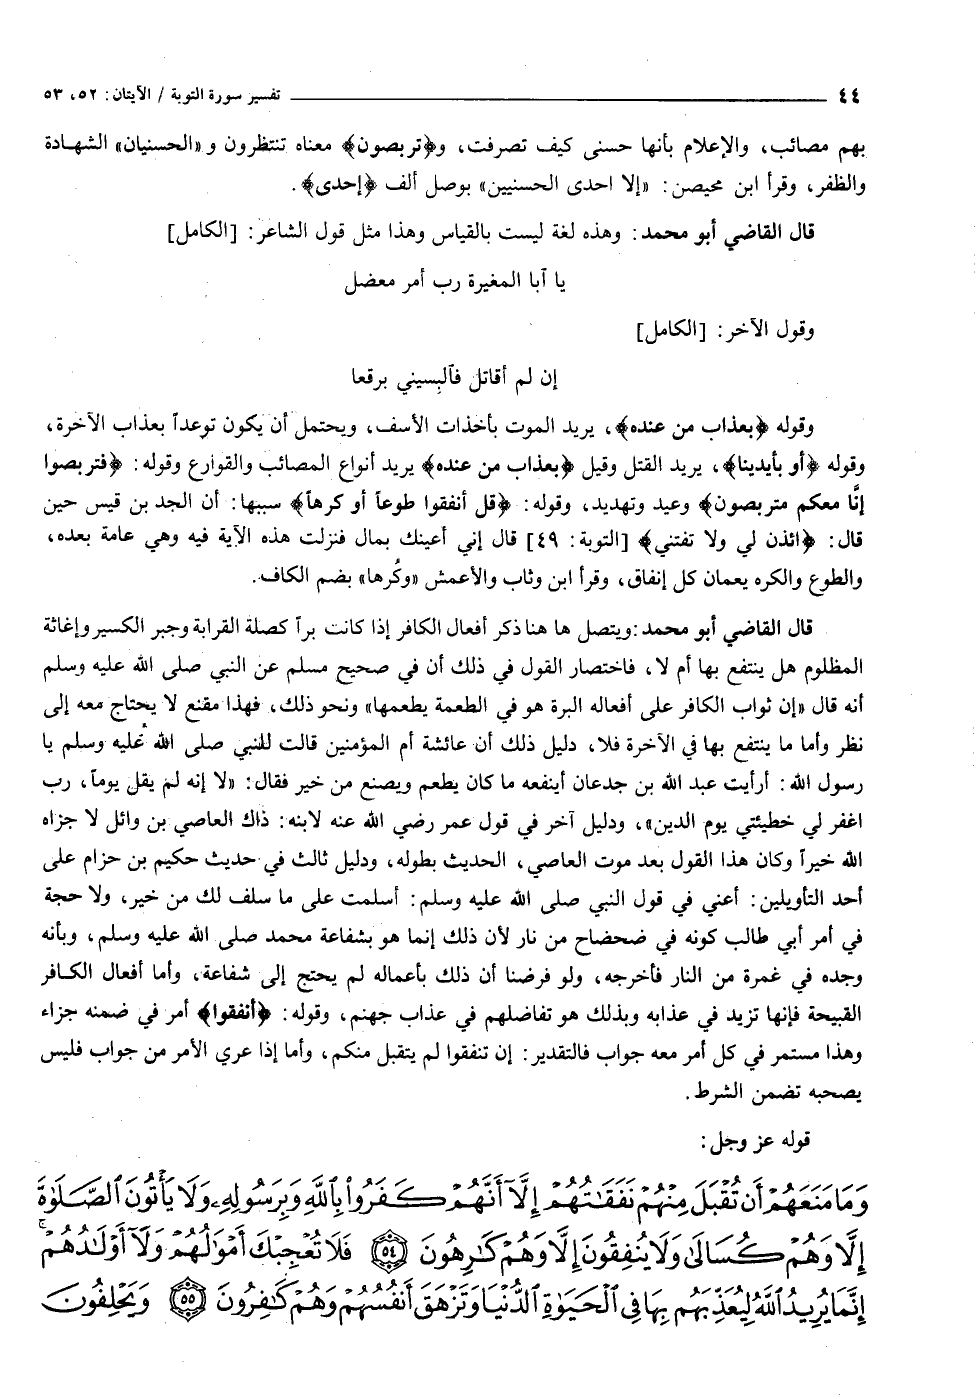 ٤٤ ــــــــ تفسير سورة التوبة / الآيتان: ٥٢، ٥٣
بهم مصائب، والإعلام بأنها حسنى كيف تصرفت، و﴿تربصون﴾ معناه تنتظرون و «الحسنيان» الشهادة
والظفر، وقرأ ابن محيصن: «إلا احدى الحسنيين» بوصل ألف ﴿إحدى﴾.
قال القاضي أبو محمد: وهذه لغة ليست بالقياس وهذا مثل قول الشاعر: [الكامل]
يا آبا المغيرة رب أمر معضل
وقول الآخر: [الكامل]
إن لم أقاتل فآلبِسيني برقعا
وقوله ﴿بعذاب من عنده﴾، يريد الموت بأخذات الأسف، ويحتمل أن يكون توعداً بعذاب الآخرة،
وقوله ﴿أو بأيدينا﴾، يريد القتل وقيل ﴿بعذاب من عنده﴾ يريد أنواع المصائب والقوارع وقوله: ﴿فتربصوا
إنَّا معكم متربصون﴾ وعيد وتهديد، وقوله: ﴿قل أنفقوا طوعاً أو كرهاً﴾ سببها: أن الجد بن قيس حين
قال: ﴿ائذن لي ولا تفتني﴾ [التوبة: ٤٩] قال إني أعينك بمال فنزلت هذه الآية فيه وهي عامة بعده،
والطوع والكره يعمان كل إنفاق، وقرأ ابن وثاب والأعمش «وكُرها» بضم الكاف.
قال القاضي أبو محمد: ويتصل ها هنا ذكر أفعال الكافر إذا كانت براً كصلة القرابة وجبر الكسير وإغاثة
المظلوم هل ينتفع بها أم لا، فاختصار القول في ذلك أن في صحيح مسلم عن النبي صلى الله عليه وسلم
أنه قال «إن ثواب الكافر على أفعاله البرة هو في الطعمة يطعمها» ونحو ذلك، فهذا مقنع لا يحتاج معه إلى
نظر وأما ما ينتفع بها في الآخرة فلا، دليل ذلك أن عائشة أم المؤمنين قالت للنبي صلى الله عليه وسلم يا
رسول الله: أرأيت عبد الله بن جدعان أينفعه ما كان يطعم ويصنع من خير فقال: «لا إنه لم يقل يوماً، رب
اغفر لي خطيئتي يوم الدين»، ودليل آخر في قول عمر رضي الله عنه لابنه: ذاك العاصي بن وائل لا جزاه
الله خيراً وكان هذا القول بعد موت العاصي، الحديث بطوله، ودليل ثالث في حديث حكيم بن حزام على
أحد التأويلين: أعني في قول النبي صلى الله عليه وسلم: أسلمت على ما سلف لك من خير، ولا حجة
في أمر أبي طالب كونه في ضحضاح من نار لأن ذلك إنما هو بشفاعة محمد صلى الله عليه وسلم، وبأنه
وجده في غمرة من النار فأخرجه، ولو فرضنا أن ذلك بأعماله لم يحتج إلى شفاعة، وأما أفعال الكافر
القبيحة فإنها تزيد في عذابه وبذلك هو تفاضلهم في عذاب جهنم، وقوله: ﴿أنفقوا﴾ أمر في ضمنه جزاء
وهذا مستمر في كل أمر معه جواب فالتقدير: إن تنفقوا لم يتقبل منكم، وأما إذا عري الأمر من جواب فليس
يصحبه تضمن الشرط.
قوله عز وجل:
وَمَا مَنَعَهُمْ أَن تُقْبَلَ مِنْهُمْ نَفَقَٰتُهُمْ إِلَّآ أَنَّهُمْ كَفَرُوا۟ بِٱللَّهِ وَبِرَسُولِهِۦ وَلَا يَأْتُونَ ٱلصَّلَوٰةَ
إِلَّا وَهُمْ كُسَالَىٰ وَلَا يُنفِقُونَ إِلَّا وَهُمْ كَٰرِهُونَ ٥٤ فَلَا تُعْجِبْكَ أَمْوَٰلُهُمْ وَلَآ أَوْلَٰدُهُمْ ۚ
إِنَّمَا يُرِيدُ ٱللَّهُ لِيُعَذِّبَهُم بِهَا فِى ٱلْحَيَوٰةِ ٱلدُّنْيَا وَتَزْهَقَ أَنفُسُهُمْ وَهُمْ كَٰفِرُونَ ٥٥ وَيَحْلِفُونَ